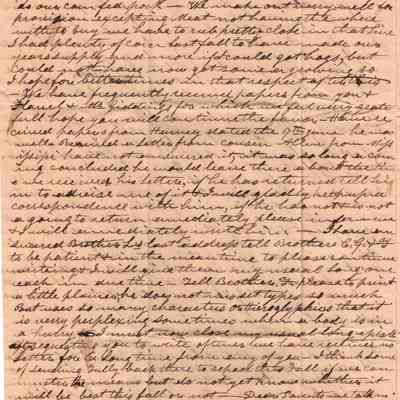 do our corn fed pork — We make out very well for
provision excepting Meat not having the where
with to buy we have to rub pretty close in that line
I had plenty of corn last fall to have made our
years supply and more if I could got hogs, but
could not. have now got some growing so
I hope for better times in that respect
We have frequently received papers from you &
full hope you will continue the favor Have re
ceived papers from Henry dated the 17th June he was
well & Received a letter from cousin from Miss
issippi have not answered it, it was so long a com
ing concluded he would leave there about the time
we received his letter, if he has returned tell him
to advise me I would gladly keep up our
correspondence with him, if he has not & is not
a going to return immediately please inform me
& I will immediately write him — I have an
swered Brothers last address tell Brothers E. G. &
to be patient & in the meantime to please continue
writing & I will give them my usual long one
each in due time — Tell Brother to please to print
a little plainer he does not miss types so much
But uses so many characters or hieroglyphics that it
is very perplexing sometimes when a body is in
a hurry — I must now close my usual letter
requesting you to write often we have received no
letter for a long time from any of you I think some
of sending back there to school this Fall if we can
the means but do not yet know whether it
will be best this fall or not — Dear Parents we